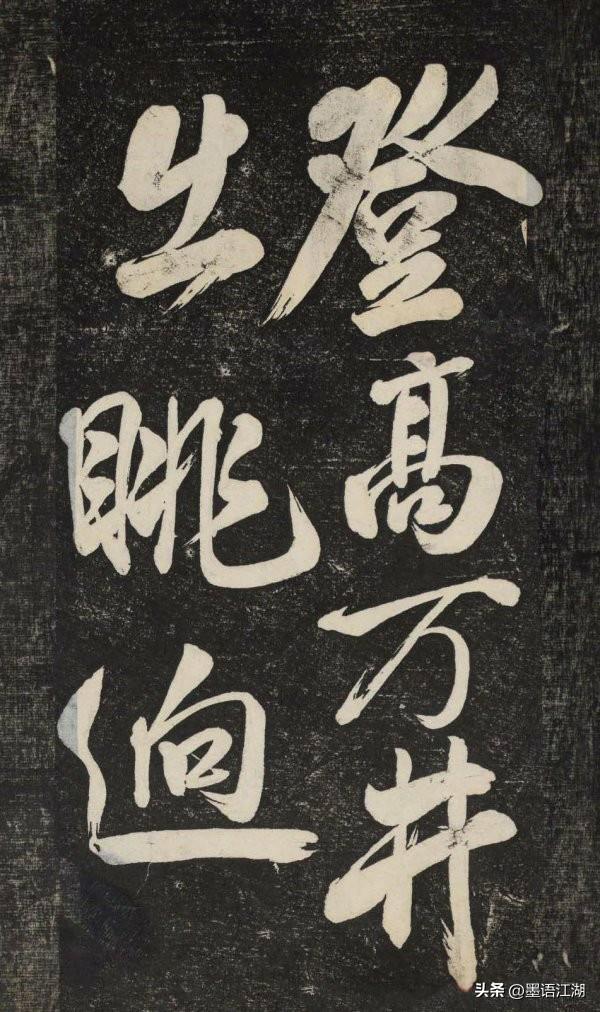 登高万井
出眺逈
头条 @墨语江湖